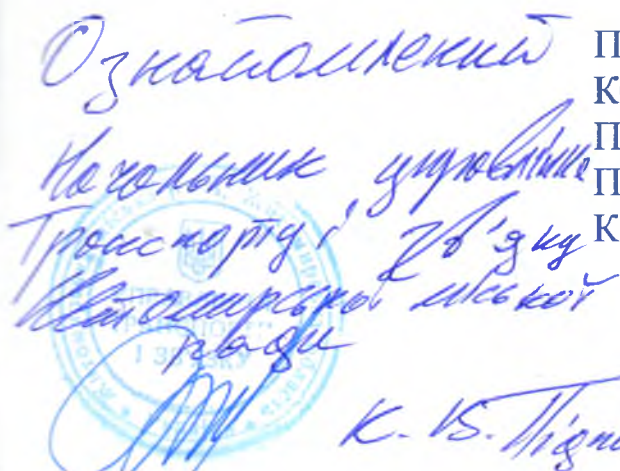 Ознайомлений
Начальник управління
Транспорту і зв'язку
Житомирської міської
ради
К. В.
П
К
П
П
К